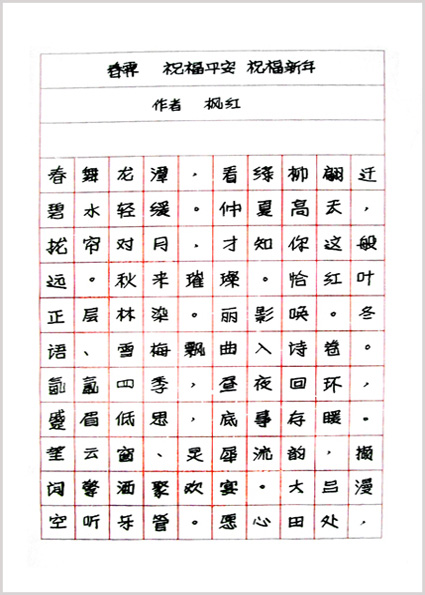 春霁 祝福平安 祝福新年
作者 枫红
春舞龙潭，看绦柳翩迁
碧水轻缓。仲夏高天，
拢帘对月，才知你这般
远。秋来璀璨。恰红叶
正层林染。丽影唤。冬
语、雪梅飘曲入诗卷。
氤氲四季，昼夜回环，
蹙眉低思，底事存暖。
云窗、灵犀流韵，撷
闻馨酒聚欢宴。大吕漫
空听乐管。愿心田处，